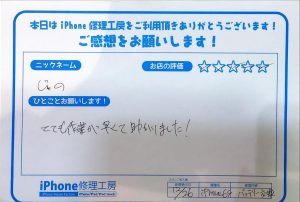 本日は iPhone 修理工房をご利用頂きありがとうございます!
ご感想をお願いします!
ニックネーム
お店の評価 ☆☆☆☆☆
じゅの
ひとことお願いします!
とても作業が早くて助かりました!
iPhone修理工房